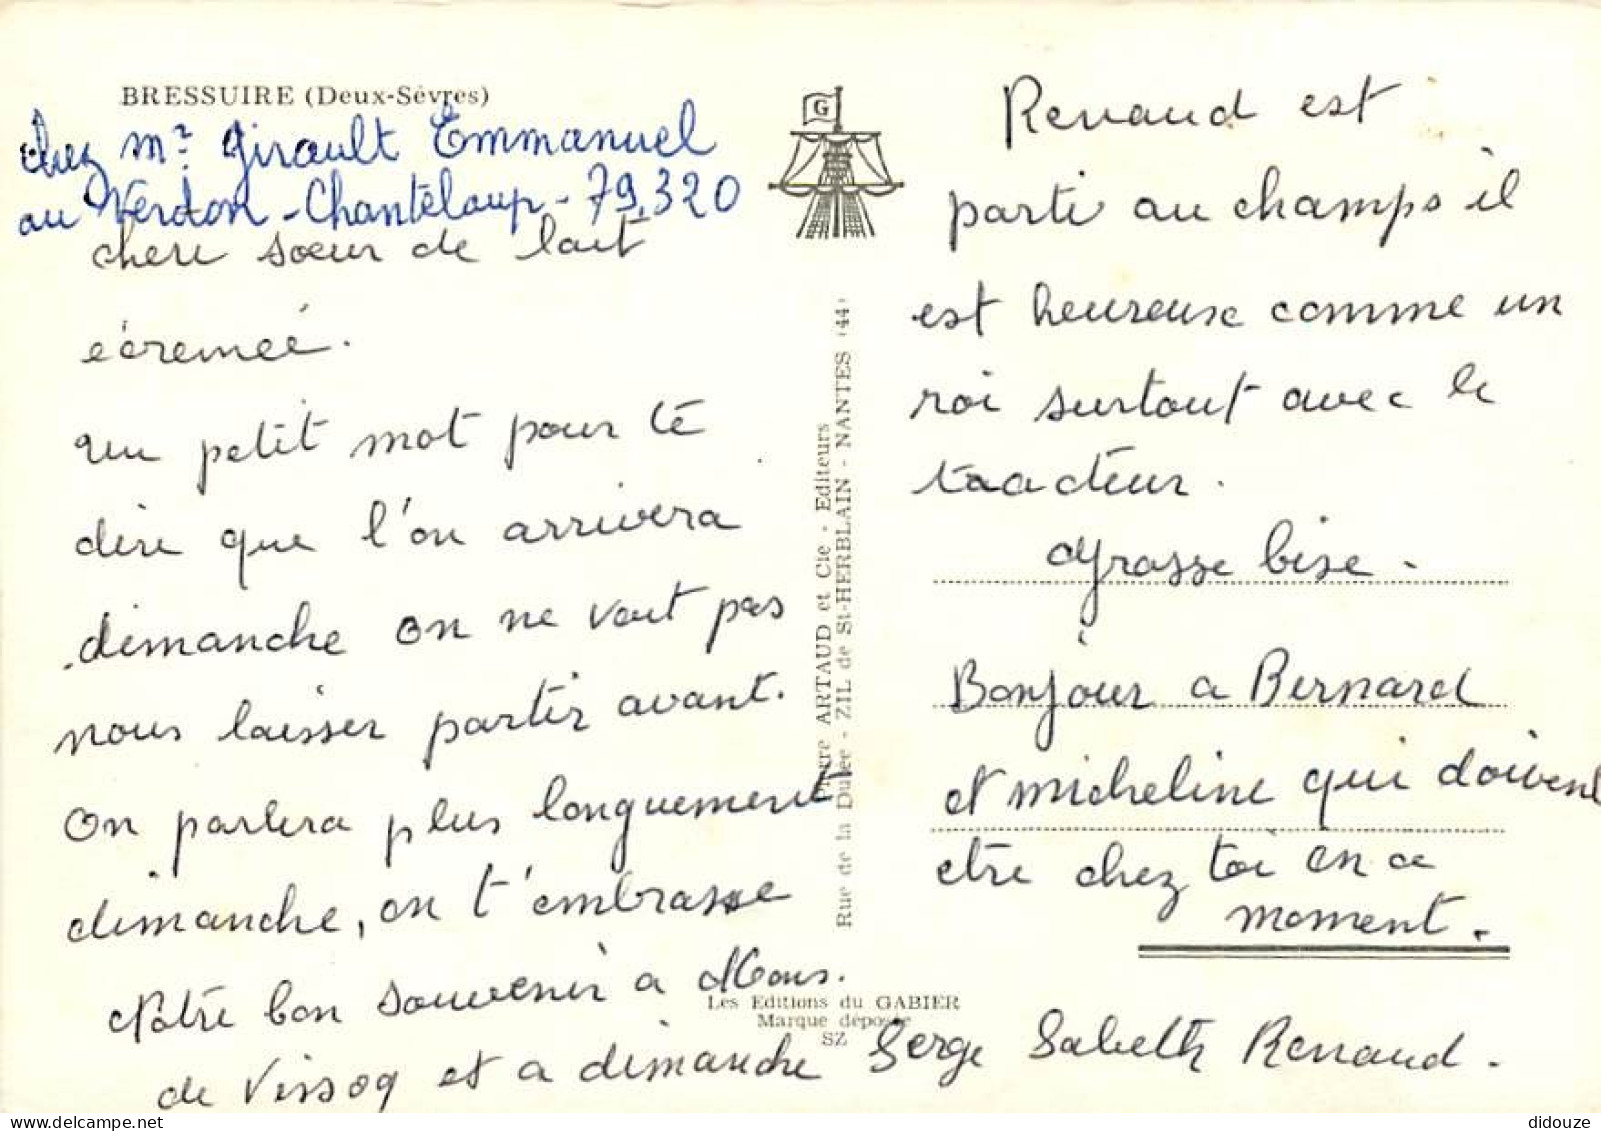 BRESSUIRE (Deux-Sèvres)
chez Mr Girault Emmanuel
au Verdon - Chanteloup - 79.320
chere soeur de lait
écremeé.
un petit mot pour te
dire que l'on arrivera
dimanche on ne veut pas
nous laisser partir avant.
On parlera plus longuement
dimanche, on t'embrasse
Notre bon souvenir a
de et a dimanche Serge Sabeth Renaud.
G
Pierre ARTAUD et Cie - Editeurs
Rue de la Dutée - ZIL de St-HERBLAIN - NANTES (44)
Les Editions du GABIER
Marque déposée
SZ
Renaud est
parti au champs il
est heureuse comme un
roi surtout avec le
tracteur.
Grosse bise.
Bonjour a Bernard
et Micheline qui doivent
etre chez toi en ce
moment.
didouze